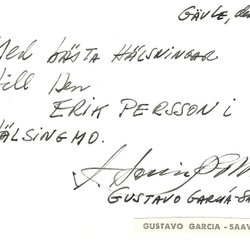 GÄVLE, den
Med BÄSTA HÄLSNINGAR
till Den
ERIK PERSSON i
HÄLSINGMO.
GUSTAVO GARCIA-SA
GUSTAVO GARCIA - SAAV